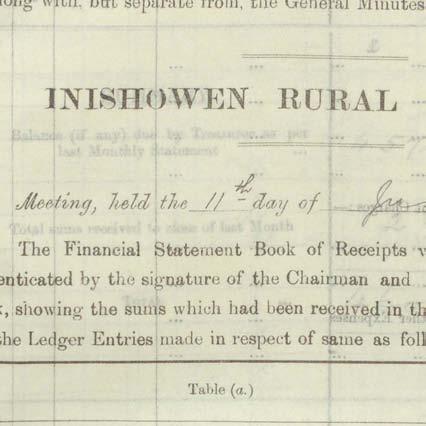 long with, but separate from, the General Minutes
INISHOWEN RURAL
Balance (if any) due by Treasurer as per
last Monthly Statement
Meeting, held the 11th day of
Total sums received to close of last Month
The Financial Statement Book of Receipts
enticated by the signature of the Chairman and
, showing the sums which had been received in th
the Ledger Entries made in respect of same as foll
Expenses
Table (a.)